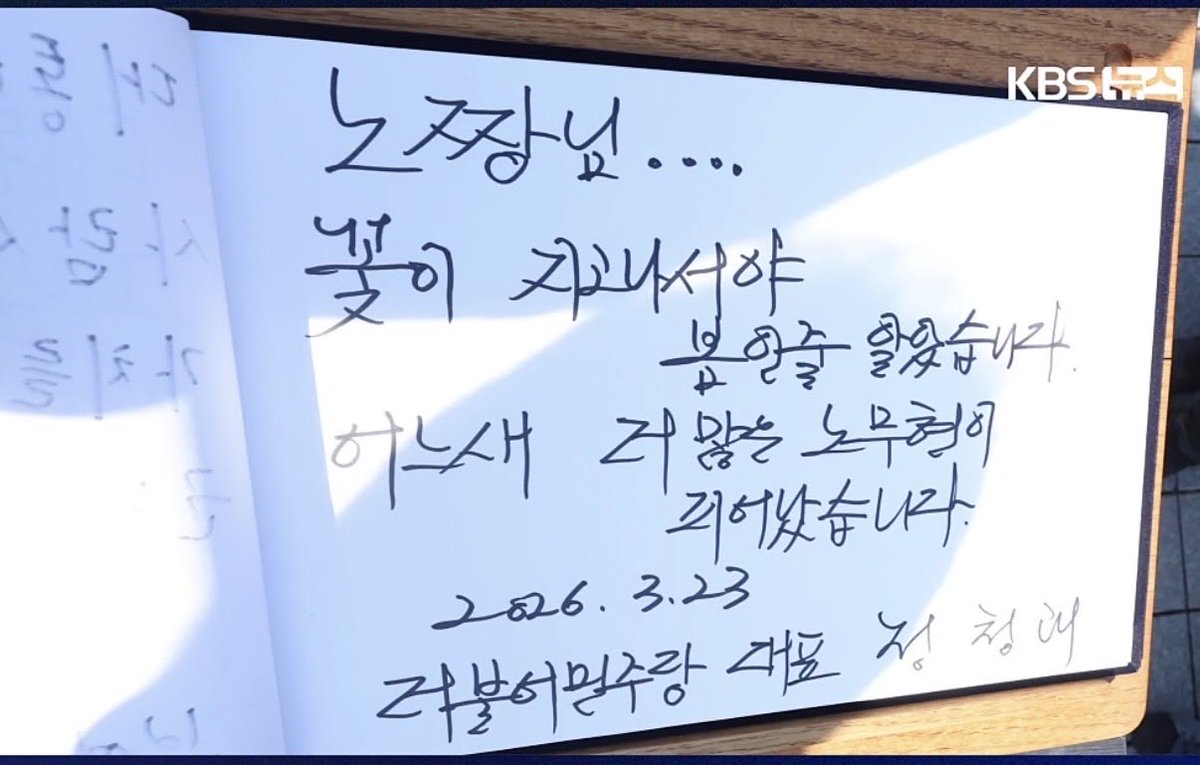 KBS 뉴스
노짱님....
꽃이 지고나서야
봄인줄 알았습니다.
어느새 더 많은 노무현이
피어났습니다.
2026. 3. 23
더불어민주당 대표 정청래